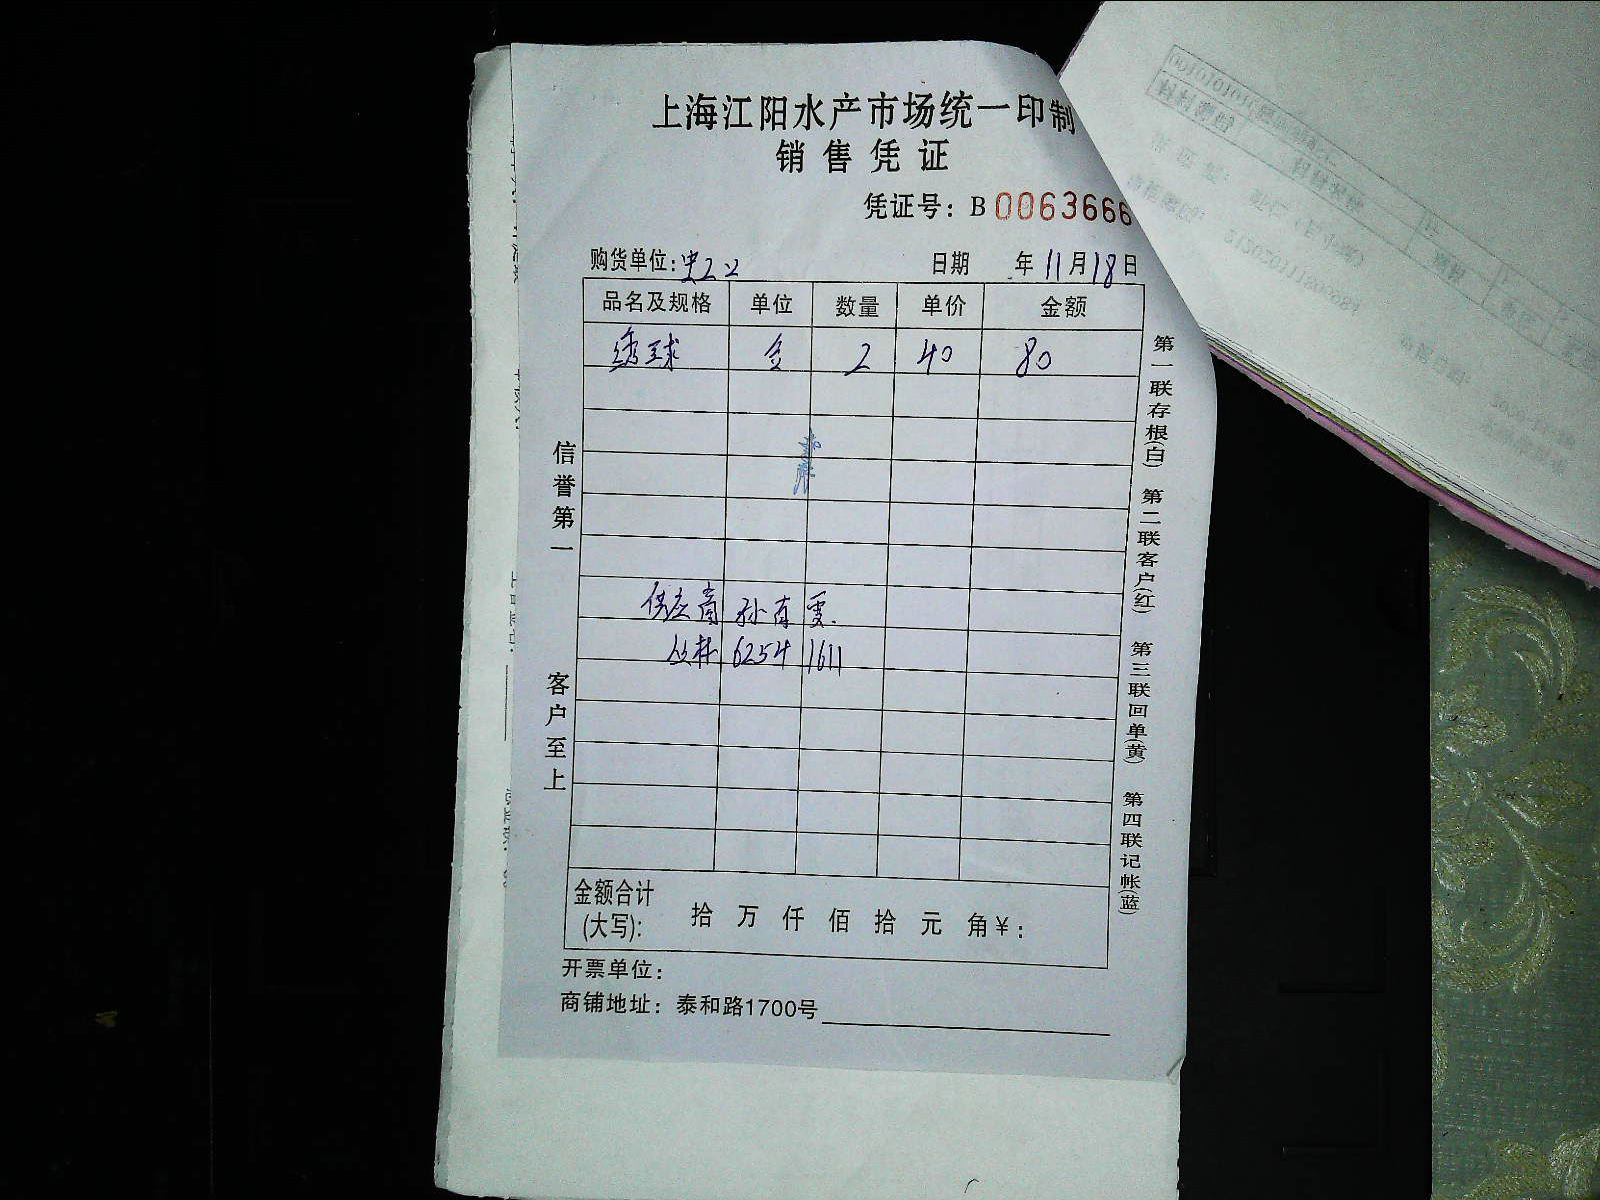 上海江阳水产市场统一印制
销售凭证
凭证号：B 0063666
购货单位：
日期 年 11 月 18 日
品名及规格 单位 数量 单价 金额
绣球 2 40 80
供应商 孙
丛林 6254 1611
信誉第一
客户至上
第一联存根(白) 第二联客户(红) 第三联回单(黄) 第四联记帐(蓝)
金额合计
(大写)： 拾 万 仟 佰 拾 元 角 ¥：
开票单位：
商铺地址：泰和路1700号